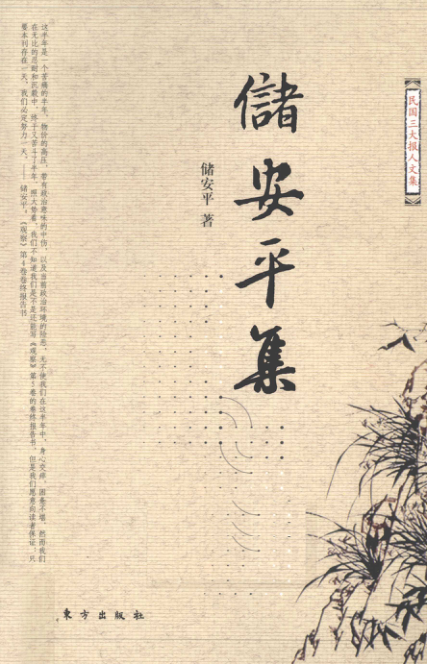 民国三大报人文集
儲安平集
储安平 著
这半年是一个苦痛的半年，物价的高压，带有政治意味的中伤，以及当前政治环境的险恶，无不使我们在这半年中，身心交瘁，困惫不堪，然而我们
在无比的忍耐和沉毅中，终于又苦斗了半年。照大势看，我们不知道我们是不是还能写《观察》第5卷的卷终报告书，但是我们愿意向读者保证：只
要本刊存在一天，我们必定努力一天。——储安平：《观察》第4卷卷终报告书
東方出版社